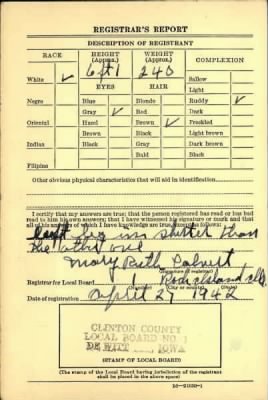 REGISTRAR'S REPORT
DESCRIPTION OF REGISTRANT
RACE HEIGHT (Approx.) WEIGHT (Approx.) COMPLEXION
6 ft 1 240
White ✓ Sallow
EYES HAIR Light
Negro Blue Blonde Ruddy ✓
Gray ✓ Red ✓ Dark
Oriental Hazel Brown Freckled
Brown Black Light brown
Indian Black Gray Dark brown
Bald Black
Filipino
Other obvious physical characteristics that will aid in identification
I certify that my answers are true; that the person registered has read or has had
read to him his own answers; that I have witnessed his signature or mark and that
all of his answers of which I have knowledge are true, except as follows:
left leg 1 in shorter than
the other one
Mary Ruth
(Signature of registrar)
Registrar for Local Board Rock Island Ills
Date of registration April 27 1942
CLINTON COUNTY
LOCAL BOARD NO. 1
DE WITT, IOWA
(STAMP OF LOCAL BOARD)
(The stamp of the Local Board having jurisdiction of the registrant
shall be placed in the above space.)
16-21630-1